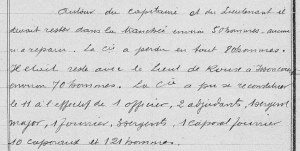 autour du capitaine et du lieutenant et
devait rester dans la tranchée environ 50 hommes, aucun
n'a reparu. La Cie a perdu en tout 80 hommes.
Il était resté avec le Lieut de Rouse à
environ 70 hommes. La Cie a pu se reconstituer
le 11 à l'effectif de 1 officier, 2 adjudants, 1 sergent
major, 1 fourrier, 3 sergents, 1 caporal fourrier
10 caporaux et 121 hommes.